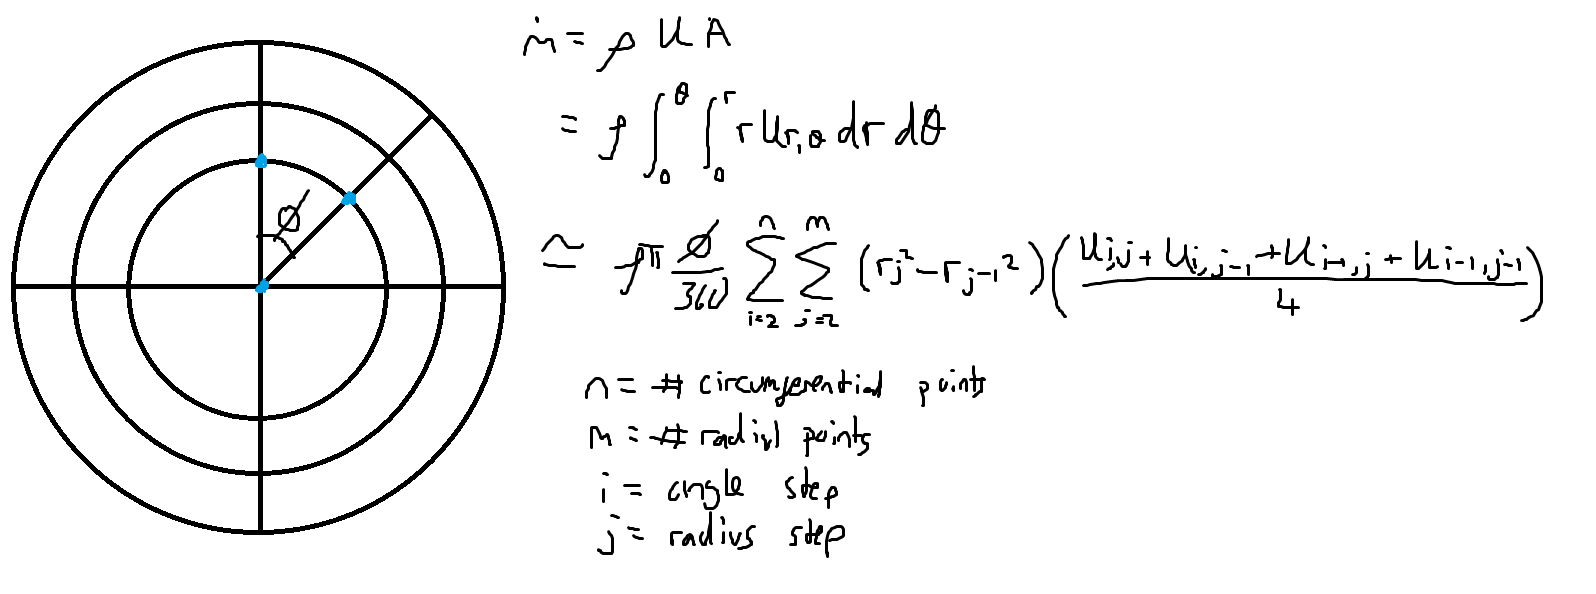 ṁ = ρ U A
= ρ ∫₀^θ ∫₀^r r U_{r,θ} dr dθ
ø
≃ ρπ ø/360 Σ_{i=2}^{n} Σ_{j=2}^{m} (r_j² - r_{j-1}²) ((U_{i,j} + U_{i,j-1} + U_{i-1,j} + U_{i-1,j-1})/4)
n = # circumferential points
m = # radial points
i = angle step
j = radius step